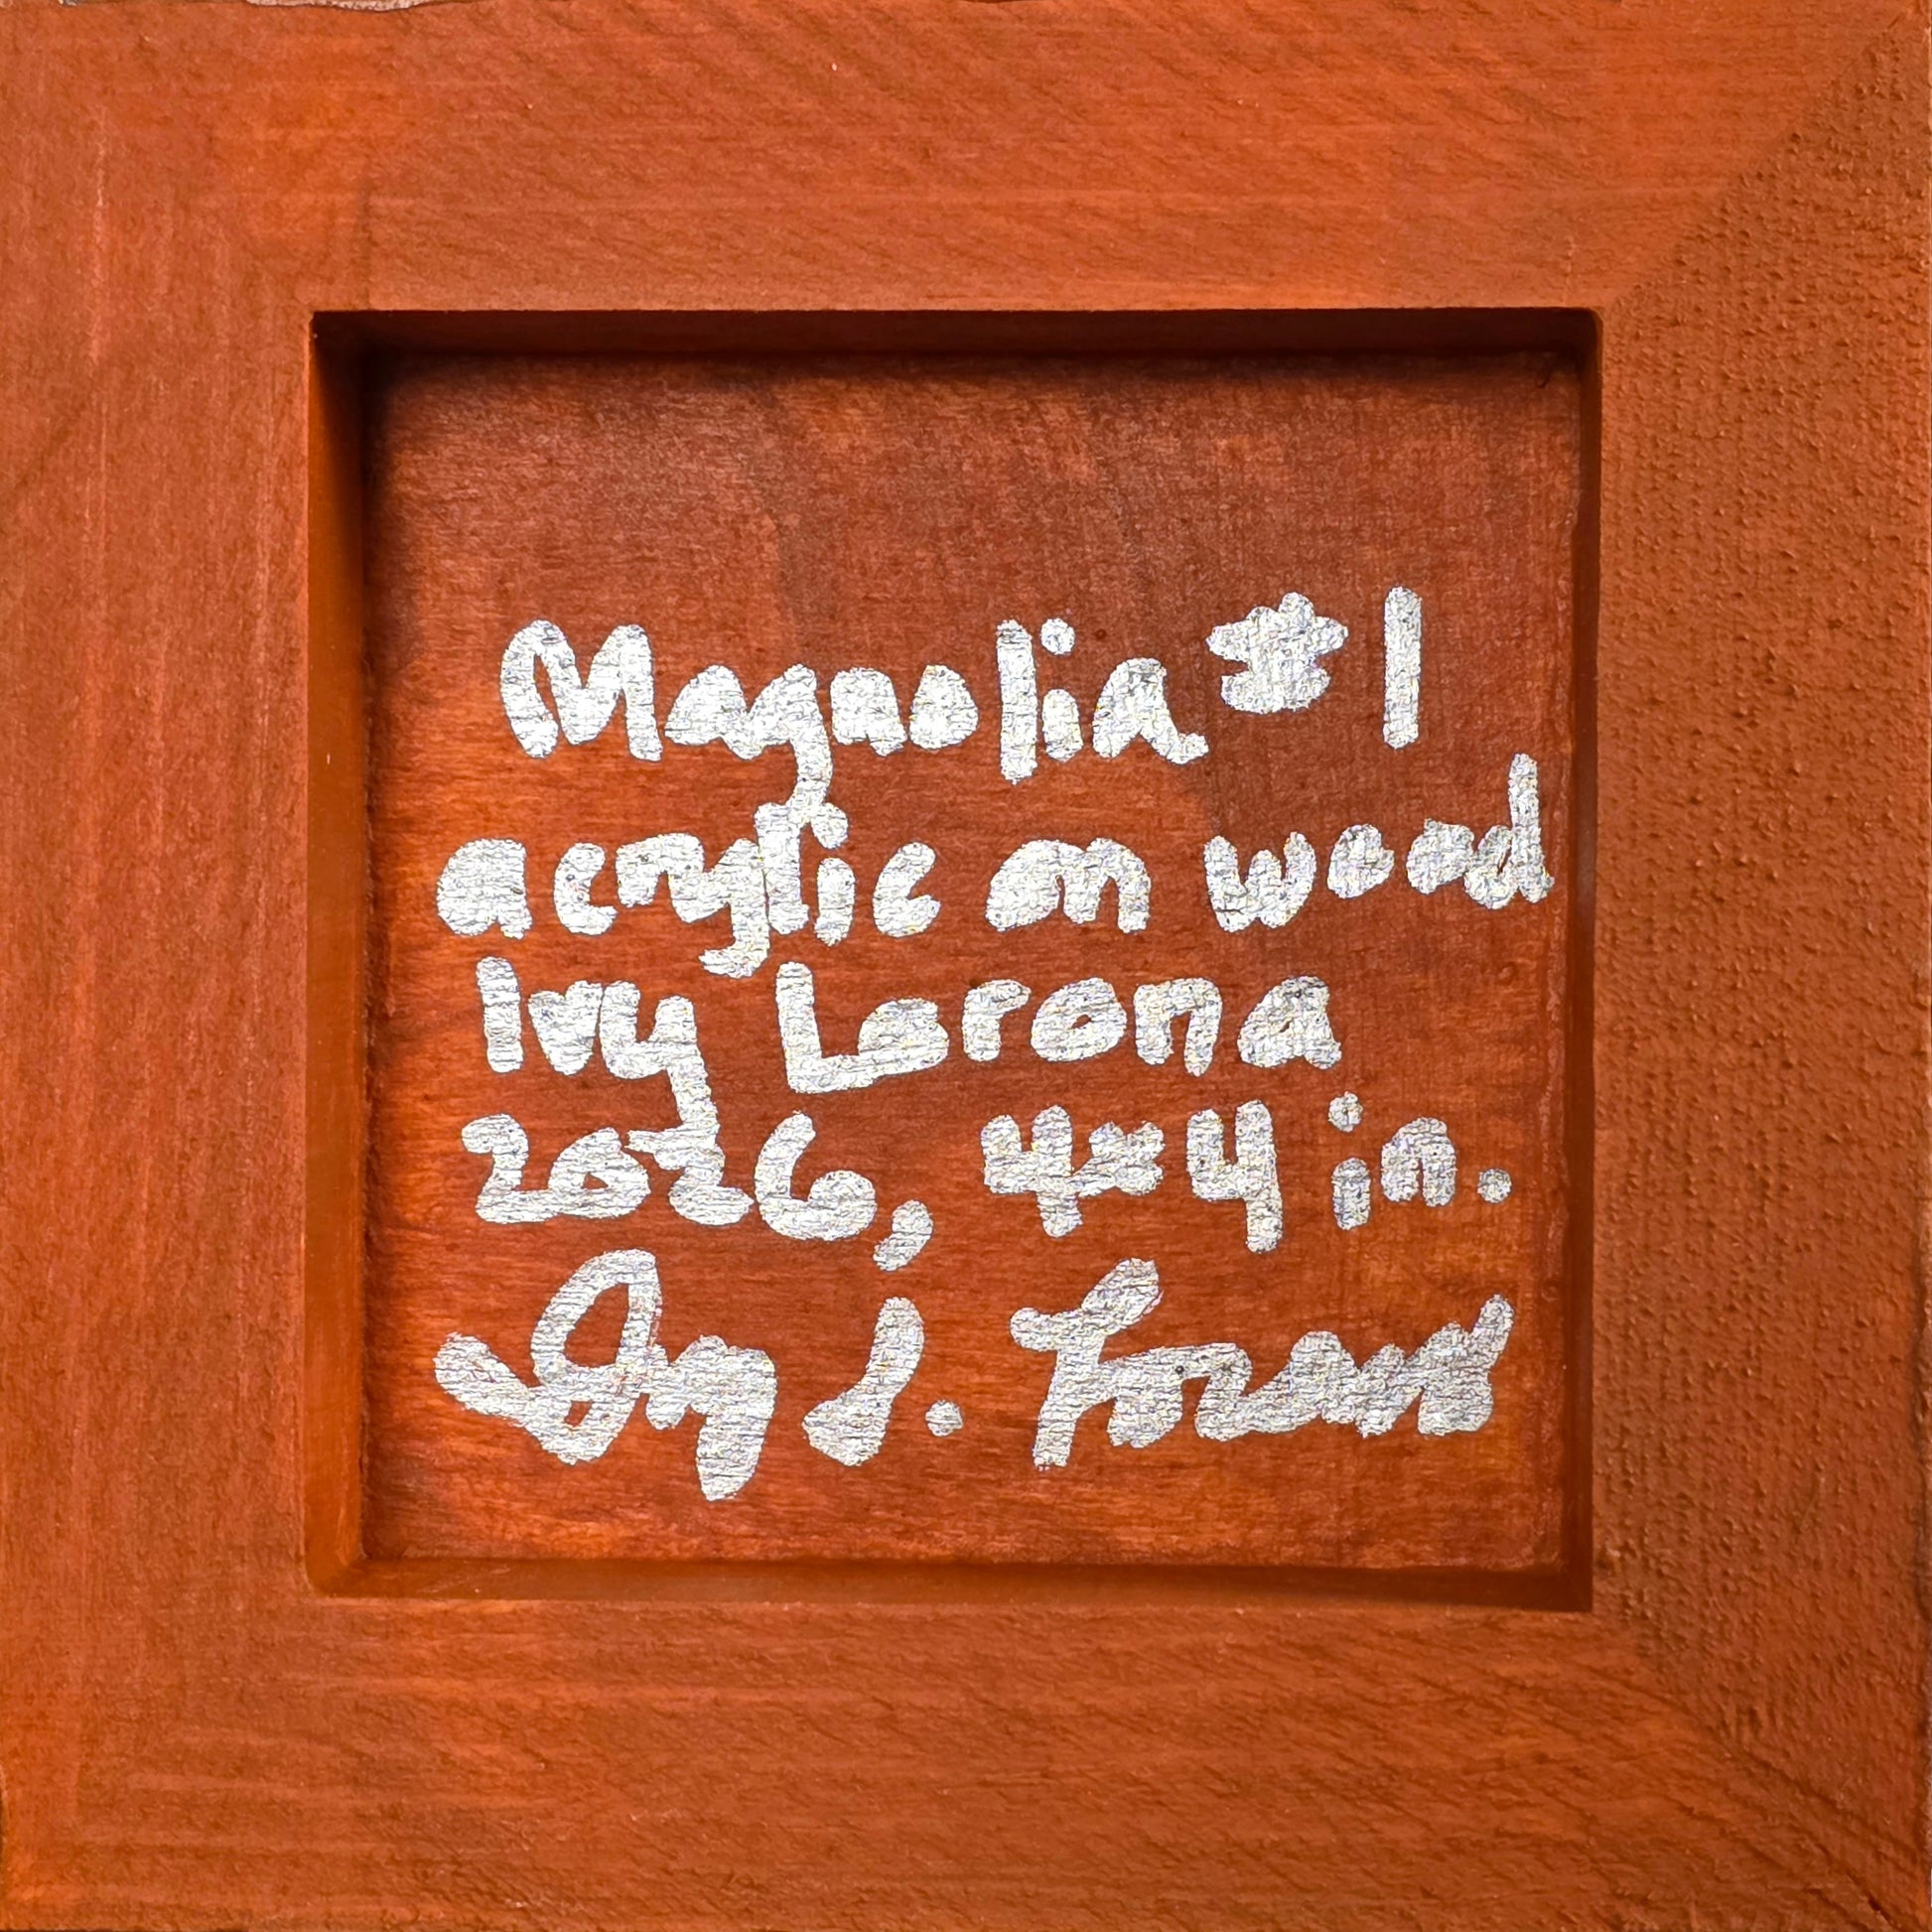 Magnolia #1
acrylic on wood
Ivy Lorona
2026, 4x4 in.
Ivy J. Lorona